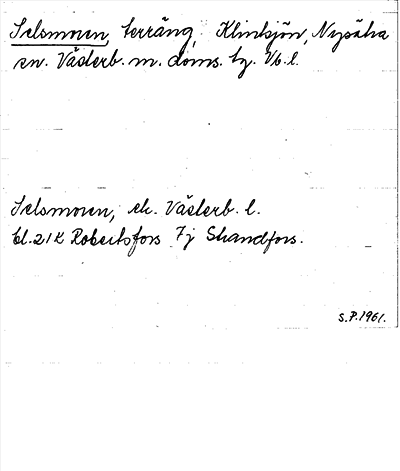 Selsmoren, terräng, Klintsjön, Nysätra
sn. Västerb. m. doms. tg. Vb. l.
Selsmoren, ek. Västerb. l.
bl. 21K Robertsfors 7j Strandfors.
S.P. 1961.